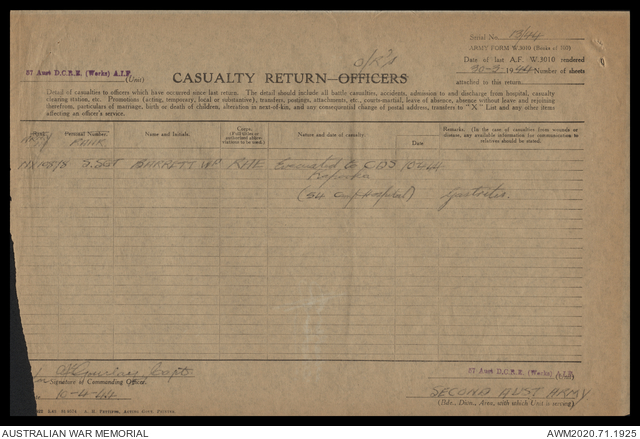 Serial No. 13/44
ARMY FORM W.3010 (Books of 100)
O/R's
Date of last A.F. W.3010 rendered
57 Aust D.C.R.E. (Works) A.I.F. (Unit)
CASUALTY RETURN—OFFICERS
30-3-1944 Number of sheets
attached to this return.
Detail of casualties to officers which have occurred since last return. The detail should include all battle casualties, accidents, admission to and discharge from hospital, casualty
clearing station, etc. Promotions (acting, temporary, local or substantive), transfers, postings, attachments, etc., courts-martial, leave of absence, absence without leave and rejoining
therefrom, particulars of marriage, birth or death of children, alteration in next-of-kin, and any consequential change of postal address, transfers to "X" List and any other items
affecting an officer's service.
Personal Number.
Name and Initials.
Corps.
(Full titles or authorized abbreviations to be used.)
Nature and date of casualty.
Date
Remarks. (In the case of casualties from wounds or disease, any available information for communication to relatives should be stated.)
BARRETT WP RAE Evacuated to CDS
Gastritis.
Capt.
Signature of Commanding Officer.
10-4-44
57 Aust D.C.R.E. (Works) A.I.F.
SECOND AUST ARMY
(Bde., Divn., Area, with which Unit is serving)
AUSTRALIAN WAR MEMORIAL
AWM2020.71.1925